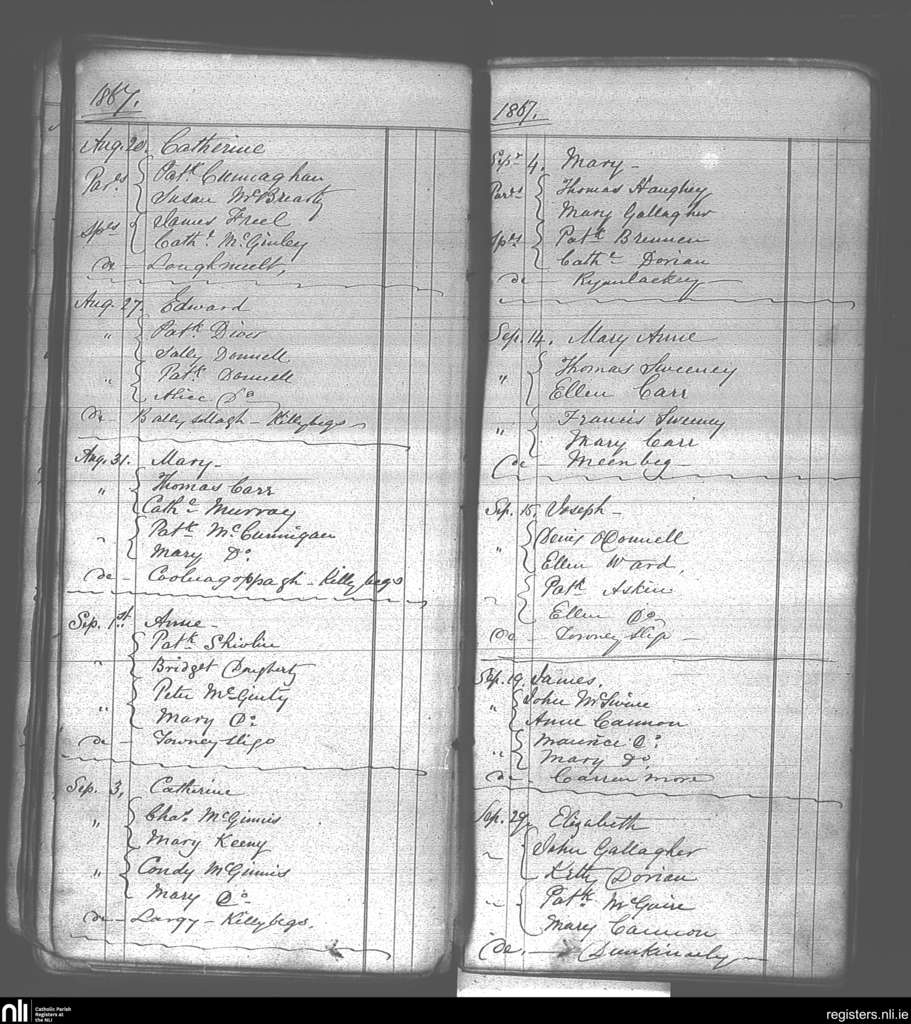 1867.
Aug. 20. Catherine
Par.s Pat.k Cunnaghan
Susan McBrearty
Sprs James Freel
Cath.e McGinley
de - Loughmult,
Aug. 27. Edward
" Pat.k Diver
Sally Donnell
" Pat.k Donnell
Alice Do
de Killybegs
Aug. 31. Mary -
" Thomas Carr
Cath.e Murray
" Pat.k McCunnigan
Mary Do.
de - Coolnagoppagh - Killybegs
Sep. 1st Anne -
Pat.k Shivlin
" Bridget Dougherty
Peter McGinty
" Mary Do.
de - Towney Sligo
Sep. 3, Catherine
" Chas. McGinnis
Mary Keeny
" Condy McGinnis
Mary Do.
de - Largy - Killybegs.
1867.
Sep.r 4. Mary -
Par.ts Thomas Haughey
Mary Gallagher
Sprs Pat.k Brennen
Cath.e Dorian
de -
Sep. 14. Mary Anne
" Thomas Sweeney
Ellen Carr
" Francis Sweeney
Mary Carr
de - Meenbeg -
Sep. 15. Joseph -
" Denis O'Connell
Ellen Ward,
Pat.k Askin
Ellen Do.
de - Towney Slip -
Sep. 19. James.
" John McSwine
Anne Cannon
" Maurice Do.
Mary Do.
de - Carren more
Sep. 29, Elizabeth
" John Gallagher
Kitty Dorian
" Pat.k McGuire
Mary Cannon
de. - Dunkineely -
nli Catholic Parish
Registers at
the NLI
registers.nli.ie